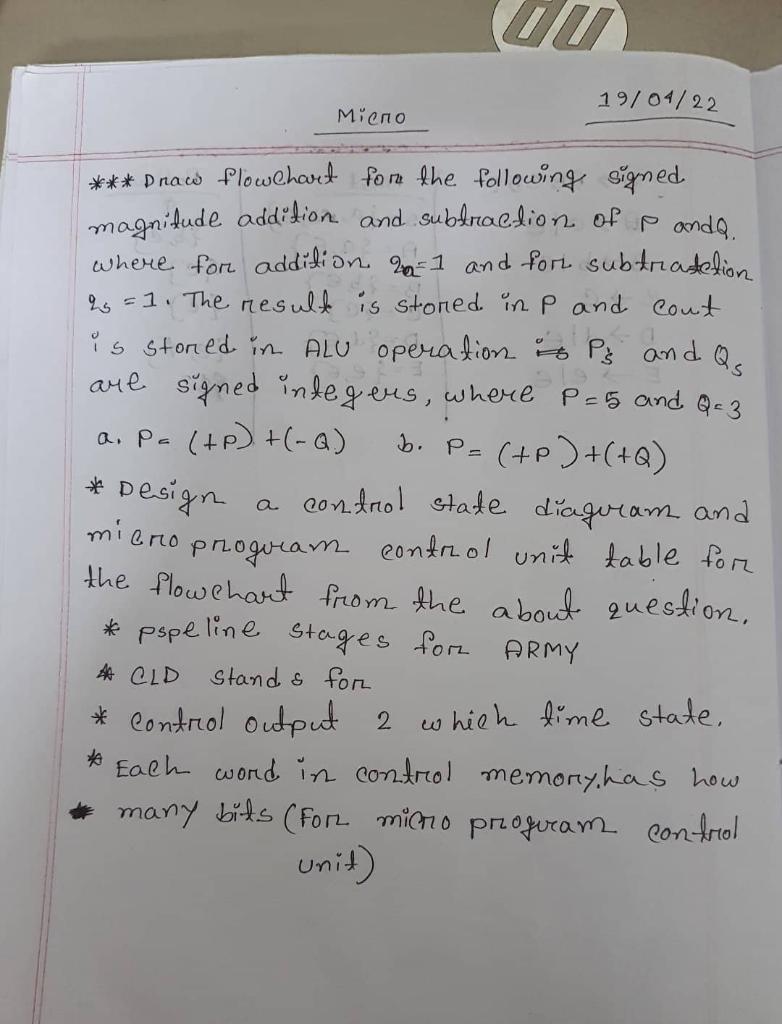 hp
Micro
19/04/22
*** Draw flowchart for the following signed
magnitude addition and subtraction of P and Q.
where for addition qa=1 and for subtraction
qs = 1. The result is stored in P and Cout
is stored in ALU operation Ps and Qs
are signed integers, where P=5 and Q=3
a. P= (+P) +(-Q) b. P= (+P)+(+Q)
* Design a control state diagram and
micro program control unit table for
the flowchart from the about question.
* pspeline stages for ARMY
* CLD stands for
* Control output 2 which time state.
* Each word in control memory.has how
* many bits (For micro program control
unit)